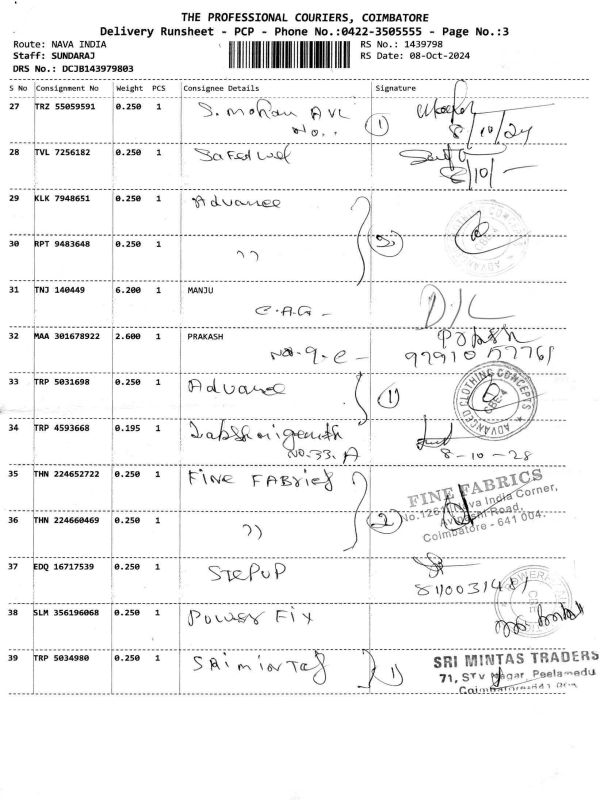 THE PROFESSIONAL COURIERS, COIMBATORE
Delivery Runsheet - PCP - Phone No.:0422-3505555 - Page No.:3
Route: NAVA INDIA
RS No.: 1439798
Staff: SUNDARAJ
RS Date: 08-Oct-2024
DRS No.: DCJB143979803
S No Consignment No Weight PCS Consignee Details Signature
27 TRZ 55059591 0.250 1 S. mohan AVL
No.. 1
8/10/24
28 TVL 7256182 0.250 1 Safedwel
8/10/-
29 KLK 7948651 0.250 1 Advance
30 RPT 9483648 0.250 1 ,,
31 TNJ 140449 6.200 1 MANJU
C.A.G - D/L
32 MAA 301678922 2.600 1 PRAKASH
No. 9. e - 97910 57761
33 TRP 5031698 0.250 1 Advance 1)
ADVANCED CLOTHING CONCEPTS
CBE-4
34 TRP 4593668 0.195 1
NO.33. A 8-10-28
35 THN 224652722 0.250 1 FINE FABRICS
FINE FABRICS
No.126, Nava India Corner,
Avinashi Road,
Coimbatore - 641 004.
36 THN 224660469 0.250 1 ,, 2
37 EDQ 16717539 0.250 1 STEPUP
38 SLM 356196068 0.250 1 Power Fix
39 TRP 5034980 0.250 1 SRi mintas 1)
SRI MINTAS TRADERS
71, STV Nagar, Peelamedu